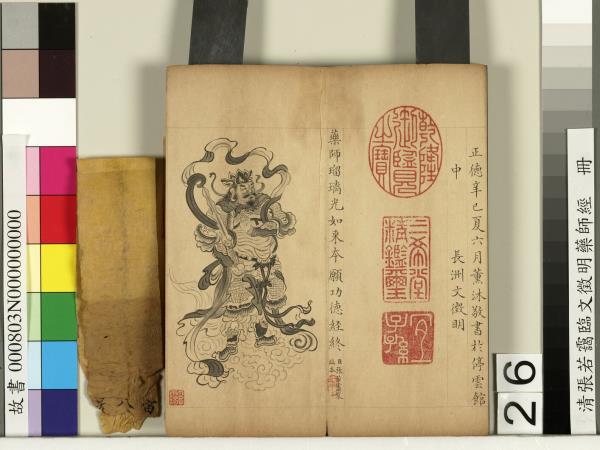 正德辛巳夏六月薰沐敬書於停雲館
中
長洲文徵明
乾隆御覽之寶
三希堂精鑑璽
宜子孫
藥師瑠璃光如來本願功德經終
故書 000803N000000000
清張若靄臨文徵明藥師經 冊
26